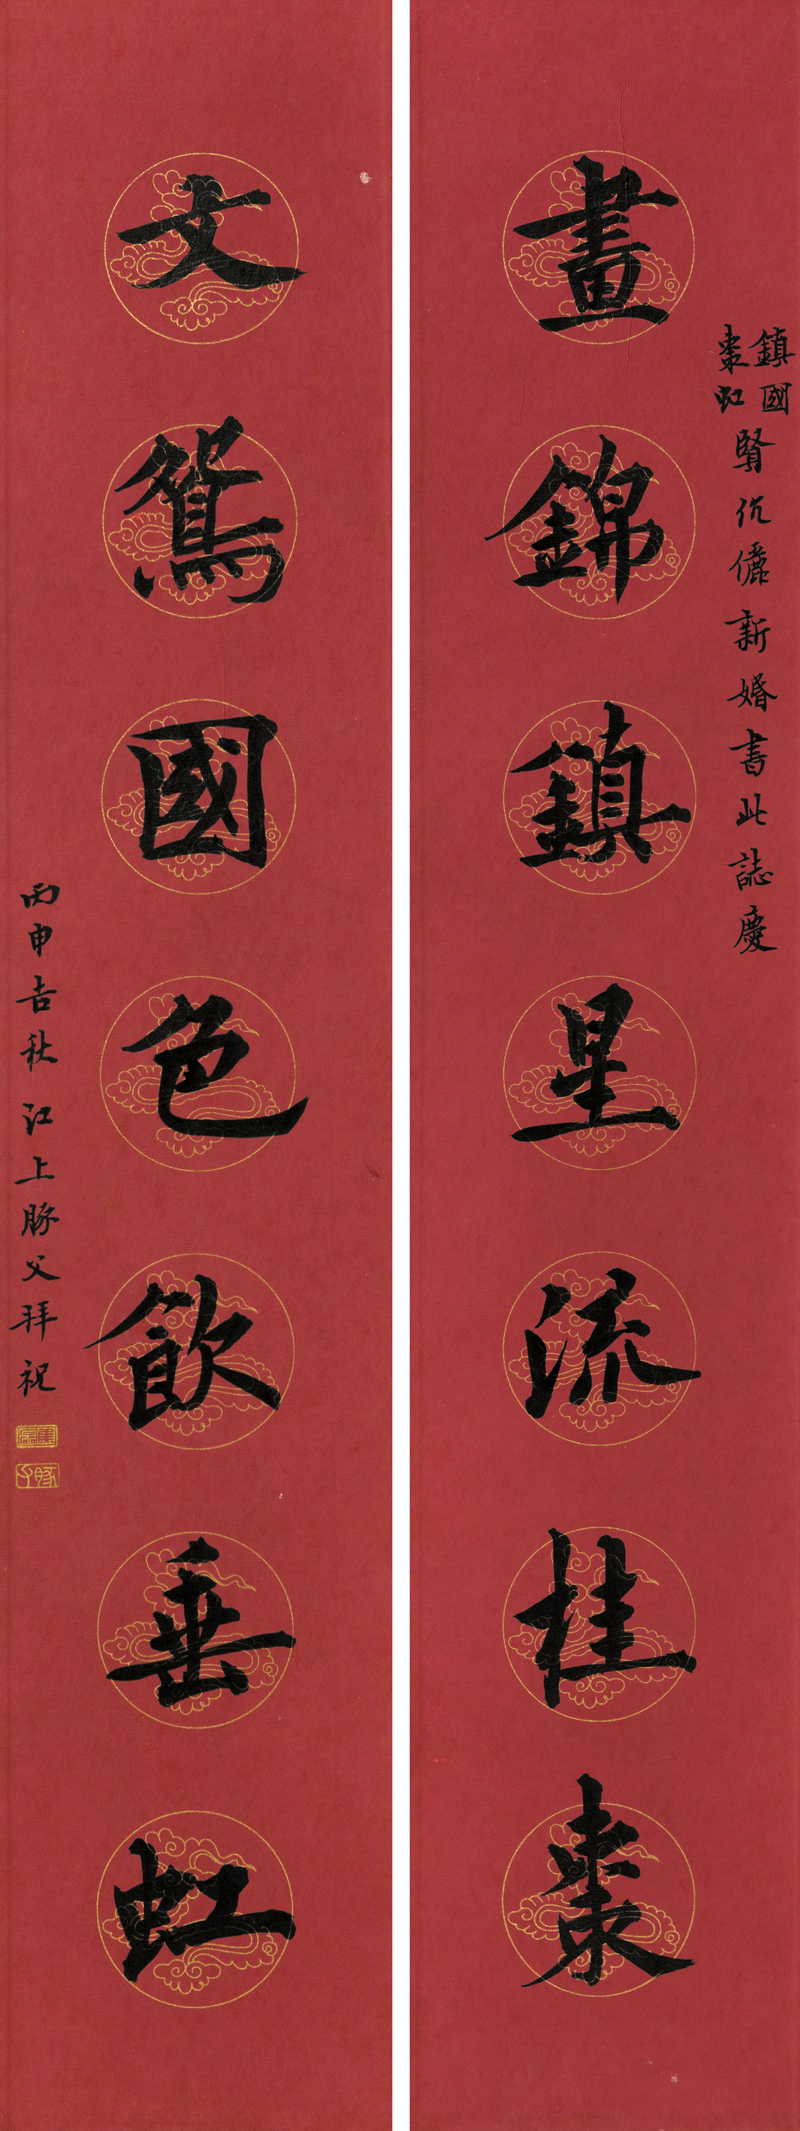 鎮國
棗虹
賢伉儷新婚書此誌慶
畫錦鎮星流桂棗
文鴛國色飲垂虹
丙申吉秋江上豚父拜祝